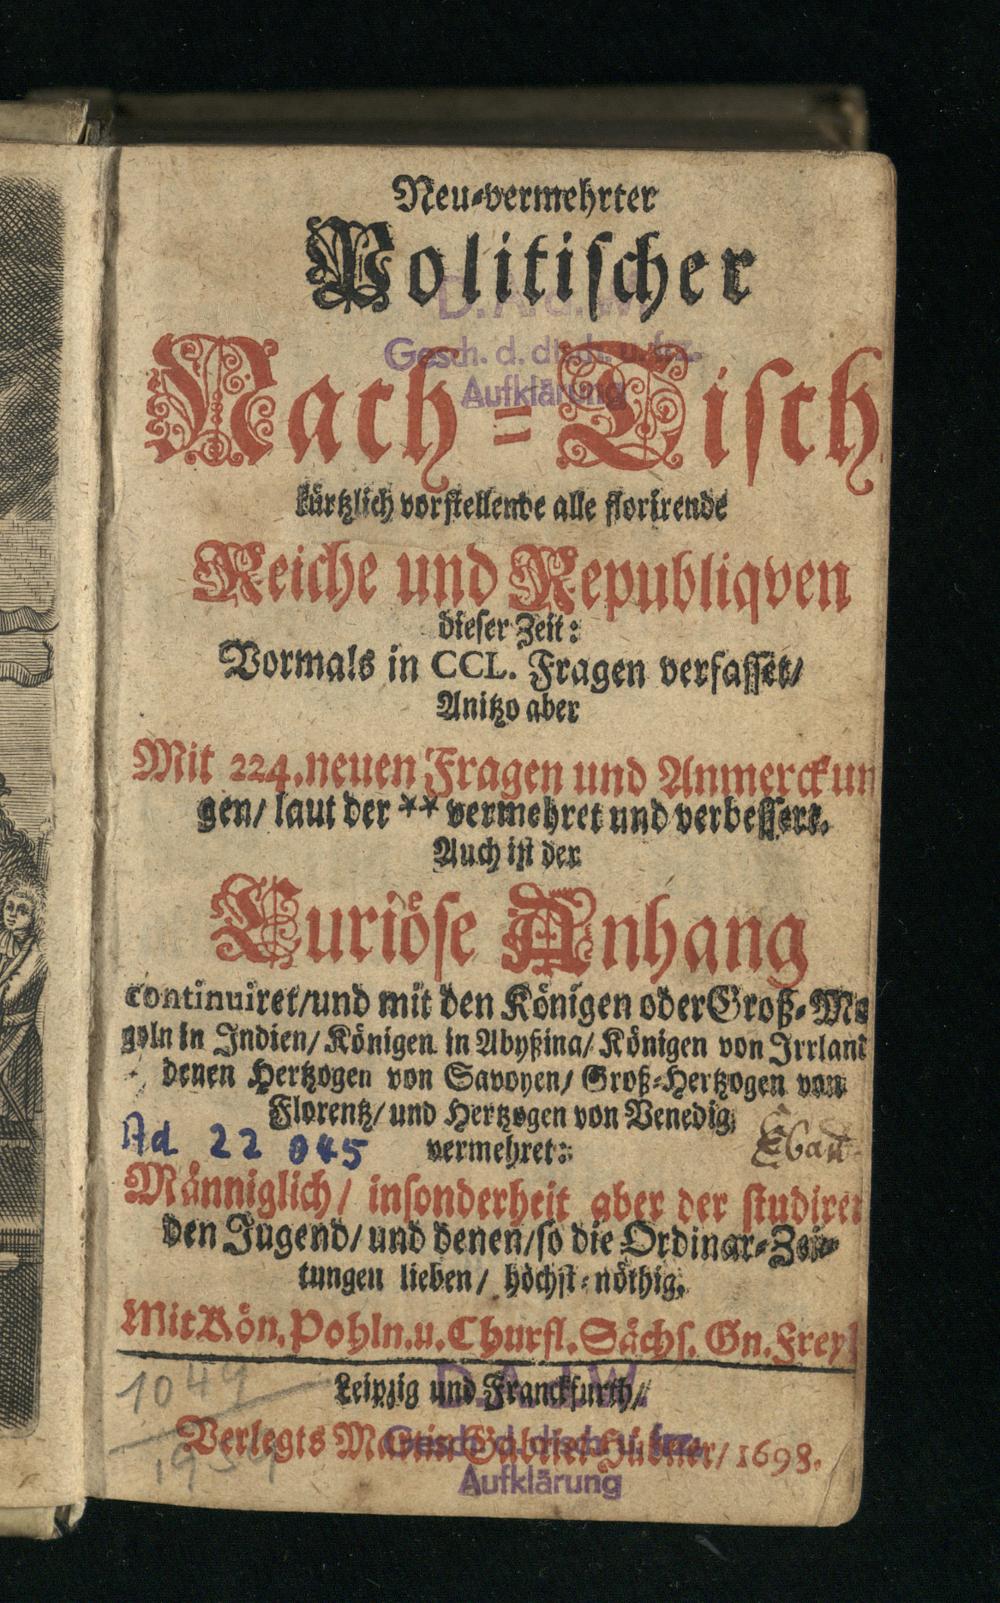 Neu-vermehrter
Politischer
D. A. d. W.
Gesch. d. dtsch. u. frz.
Aufklärung
Nach-Tisch
kürtzlich vorstellende alle florirende
Reiche und Republiqven
dieser Zeit:
Vormals in CCL. Fragen verfasset/
Anitzo aber
Mit 224. neuen Fragen und Anmerckun
gen/ laut der ** vermehret und verbessert.
Auch ist der
Curiöse Anhang
continuiret/und mit den Königen oder Groß-Mo
goln in Indien/ Königen in Abyßina/ Königen von Irrland
denen Hertzogen von Savoyen/ Groß-Hertzogen von
Florentz/ und Hertzogen von Venedig
vermehret:
Ad 22 045
Männiglich/ insonderheit aber der studiren
den Jugend/ und denen/so die Ordinar-Zei-
tungen lieben/ höchst-nöthig.
Mit Kön. Pohln. u. Churfl. Sächs. Gn. Frey
Leipzig und Franckfurth/
D. A. d. W.
1049
Verlegts Martin Gabriel Hübner/ 1698.
Gesch. d. dtsch. u. frz.
Aufklärung